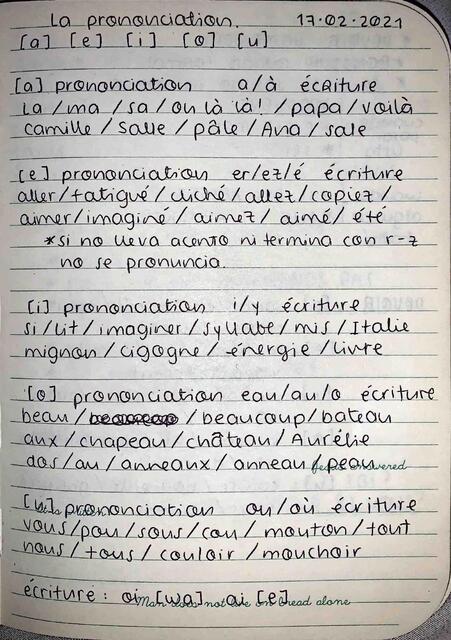 La prononciation. 17.02.2021
[a] [e] [i] [o] [u]
[a] prononciation a/à écriture
La / ma / sa / ou là là! / papa / voilà
camille / salle / pâle / Ana / sale
[e] prononciation er/ez/é écriture
aller / fatigué / cliché / allez / copiez /
aimer / imaginé / aimez / aimé / été
*si no lleva acento ni termina con r-z
no se pronuncia.
[i] prononciation i/y écriture
si / lit / imaginer / syllabe / mis / Italie
mignon / cigogne / énergie / livre
[o] prononciation eau/au/o écriture
beau / / beaucoup / bateau
aux / chapeau / château / Aurélie
dos / au / anneaux / anneau / peau answered
[u] prononciation ou/où écriture
vous / pou / sous / cou / mouton / tout
nous / tous / couloir / mouchoir
écriture : oi [wa] ai [e]
Man does not live on bread alone